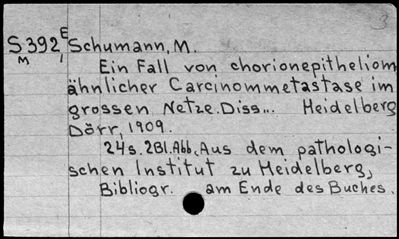 3
E
S392 Schumann, M.
M 1
Ein Fall von chorionepitheliom
ähnlicher Carcinommetastase im
grossen Netze. Diss... Heidelberg
Dörr, 1909.
24s. 2Bl. Abb. Aus dem pathologi-
schen Institut zu Heidelberg,
Bibliogr. am Ende des Buches.